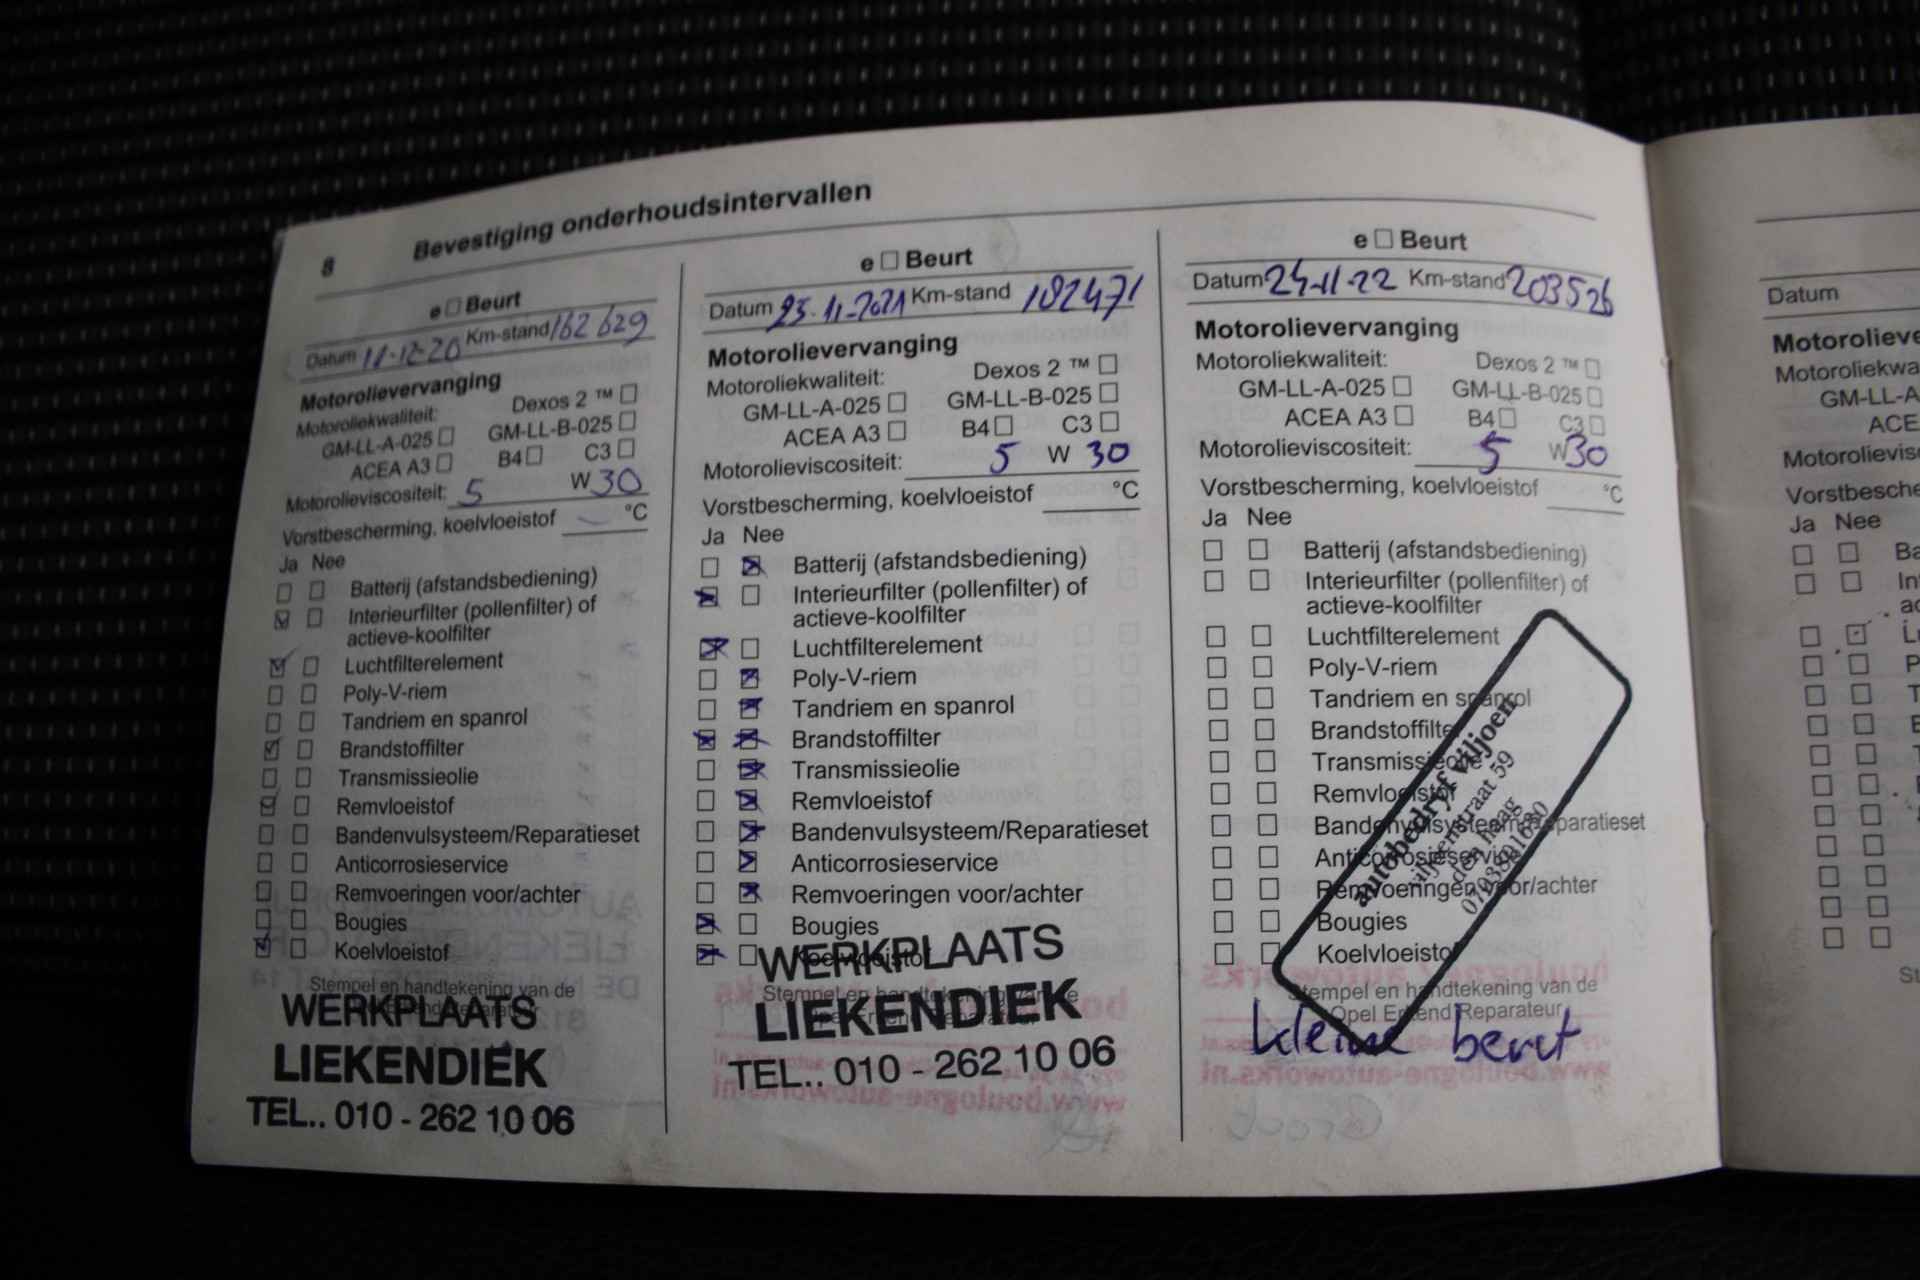 8 Bevestiging onderhoudsintervallen
e □ Beurt
Datum 11-12-20 Km-stand 162629
Motorolievervanging
Motoroliekwaliteit: Dexos 2 ™ □
GM-LL-A-025 □ GM-LL-B-025 □
ACEA A3 □ B4 □ C3 □
Motorolieviscositeit: 5 W 30
Vorstbescherming, koelvloeistof °C
Ja Nee
Batterij (afstandsbediening)
Interieurfilter (pollenfilter) of
actieve-koolfilter
Luchtfilterelement
Poly-V-riem
Tandriem en spanrol
Brandstoffilter
Transmissieolie
Remvloeistof
Bandenvulsysteem/Reparatieset
Anticorrosieservice
Remvoeringen voor/achter
Bougies
Koelvloeistof
Stempel en handtekening van de
WERKPLAATS
LIEKENDIEK
TEL.. 010 - 262 10 06
e □ Beurt
Datum 23-11-2021 Km-stand 182471
Motorolievervanging
Motoroliekwaliteit: Dexos 2 ™ □
GM-LL-A-025 □ GM-LL-B-025 □
ACEA A3 □ B4 □ C3 □
Motorolieviscositeit: 5 W 30
Vorstbescherming, koelvloeistof °C
Ja Nee
Batterij (afstandsbediening)
Interieurfilter (pollenfilter) of
actieve-koolfilter
Luchtfilterelement
Poly-V-riem
Tandriem en spanrol
Brandstoffilter
Transmissieolie
Remvloeistof
Bandenvulsysteem/Reparatieset
Anticorrosieservice
Remvoeringen voor/achter
Bougies
Koelvloeistof
Stempel en handtekening van de
WERKPLAATS
LIEKENDIEK
TEL.. 010 - 262 10 06
e □ Beurt
Datum 24-11-22 Km-stand 203526
Motorolievervanging
Motoroliekwaliteit: Dexos 2 ™ □
GM-LL-A-025 □ GM-LL-B-025 □
ACEA A3 □ B4 □ C3 □
Motorolieviscositeit: 5 W 30
Vorstbescherming, koelvloeistof °C
Ja Nee
Batterij (afstandsbediening)
Interieurfilter (pollenfilter) of
actieve-koolfilter
Luchtfilterelement
Poly-V-riem
Tandriem en spanrol
Brandstoffilter
Transmissieolie
Remvloeistof
Bandenvulsysteem/Reparatieset
Anticorrosieservice
Remvoeringen voor/achter
Bougies
Koelvloeistof
Stempel en handtekening van de
Opel Erkend Reparateur
autobedryf viljoen
viljoenstraat 59
den haag
kleine berut
Datum
Motorolieve
Motoroliekwa
GM-LL-A
ACE
Motorolievis
Vorstbesche
Ja Nee